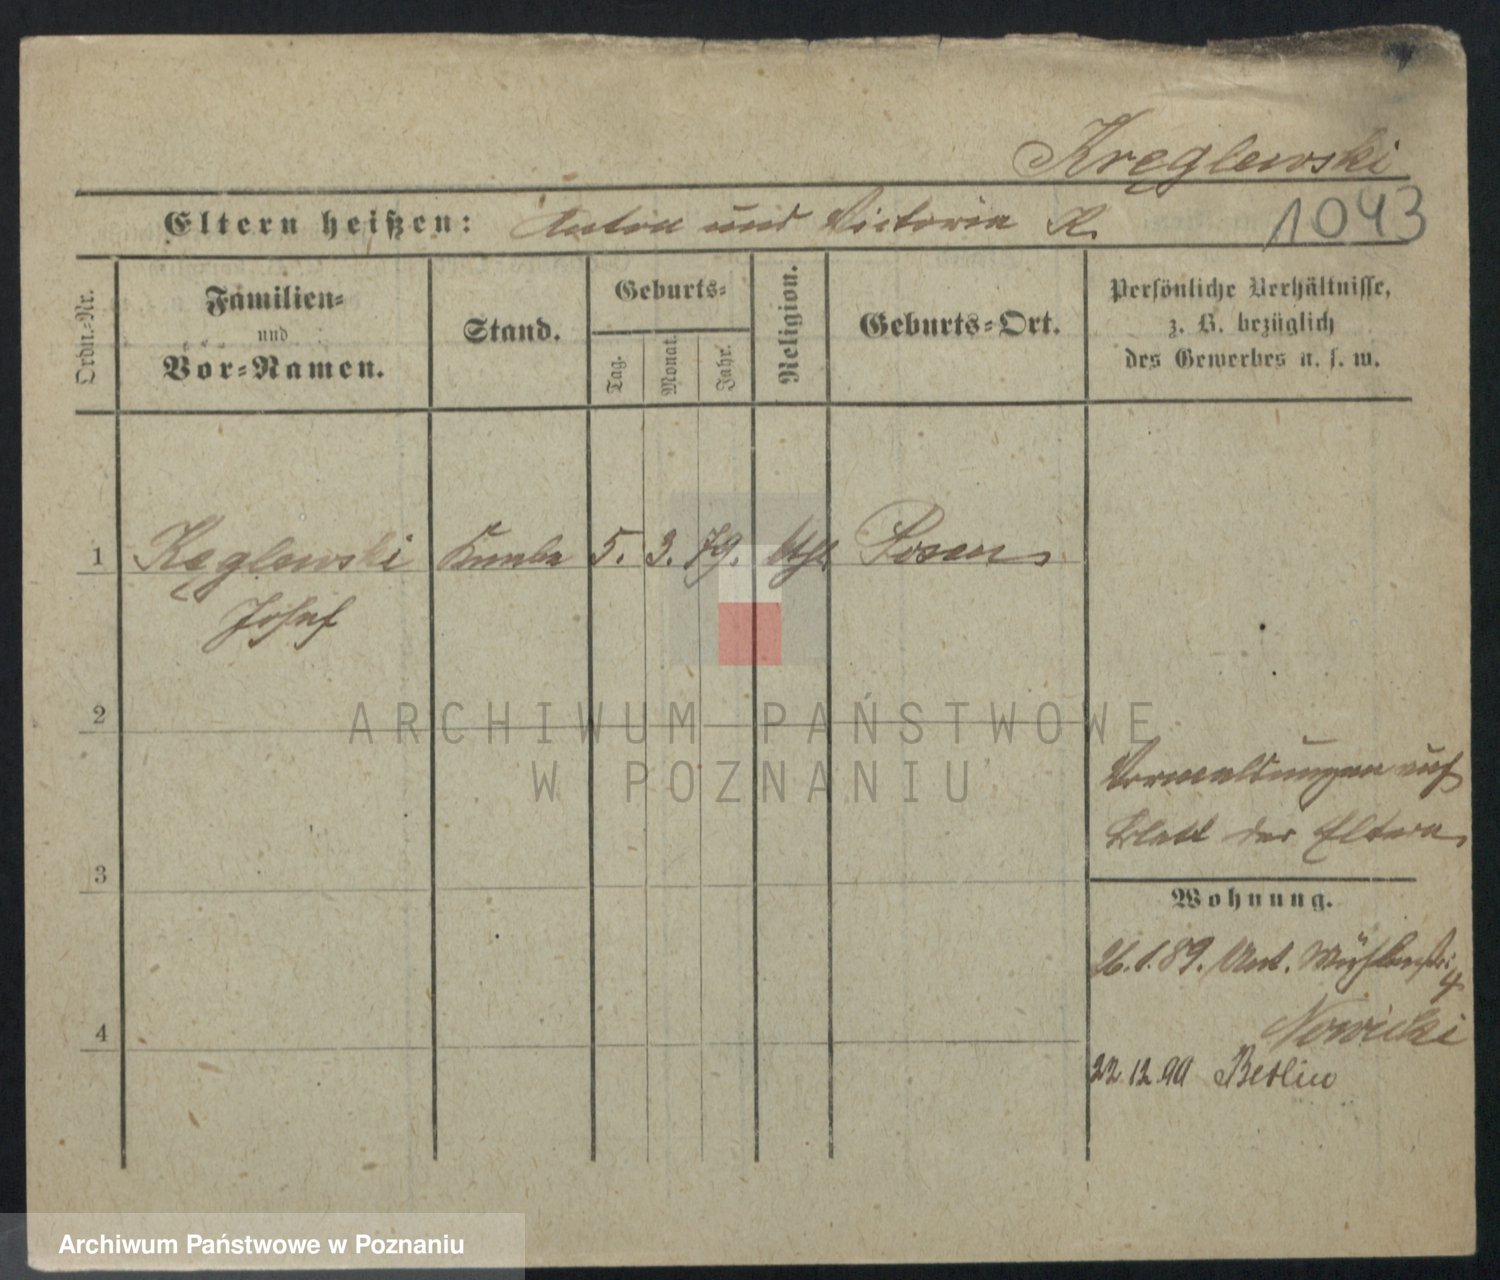 Kręglewski
Eltern heißen: Anton und Victoria K.
1043
Ordn.-Nr.
Familien-
und
Vor-Namen.
Stand.
Geburts-
Tag.
Monat.
Jahr.
Religion.
Geburts-Ort.
Persönliche Verhältnisse,
z. B. bezüglich
des Gewerbes u. s. w.
1 Kęglewski Knabe 5. 3. 79. kth Posen
Josef
2
ARCHIWUM PAŃSTWOWE
W POZNANIU
3
4
auf
Blatt der Eltern
Wohnung.
26.1.89. Unt. Mühlenstr.
4
Nowicki
22.12.90 Berlin
Archiwum Państwowe w Poznaniu